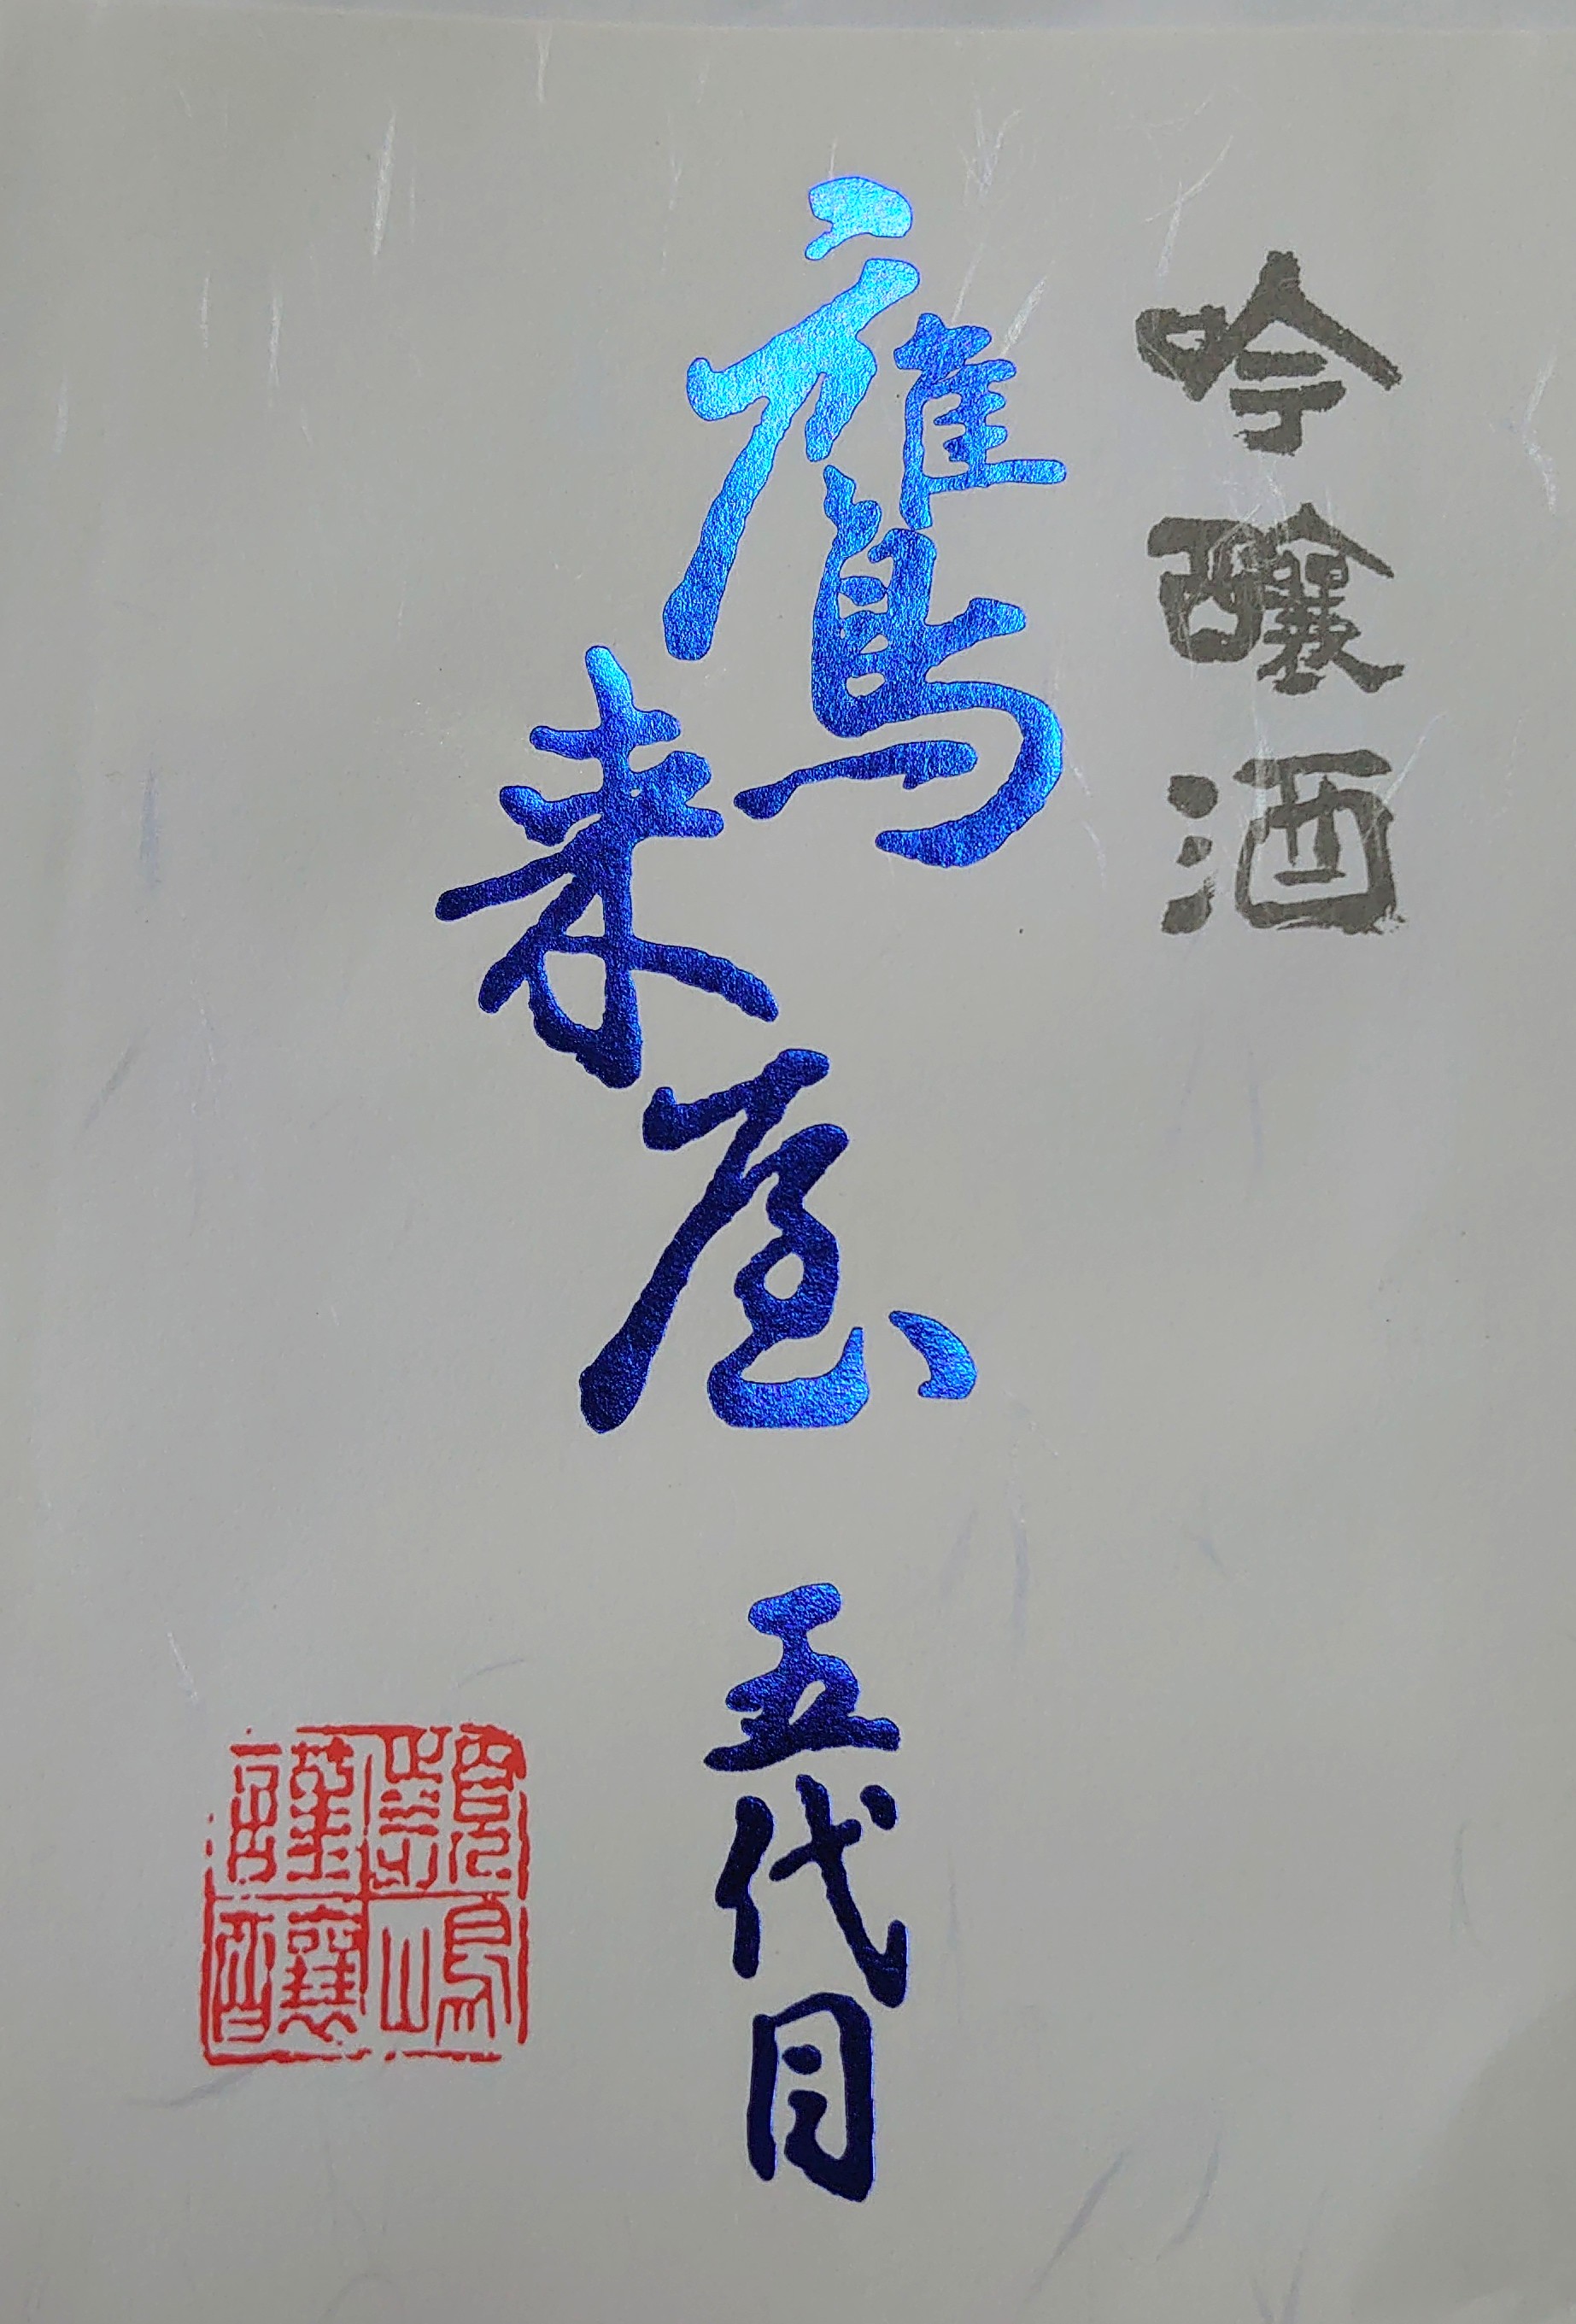 吟醸酒
鷹来屋 五代目
謹醸